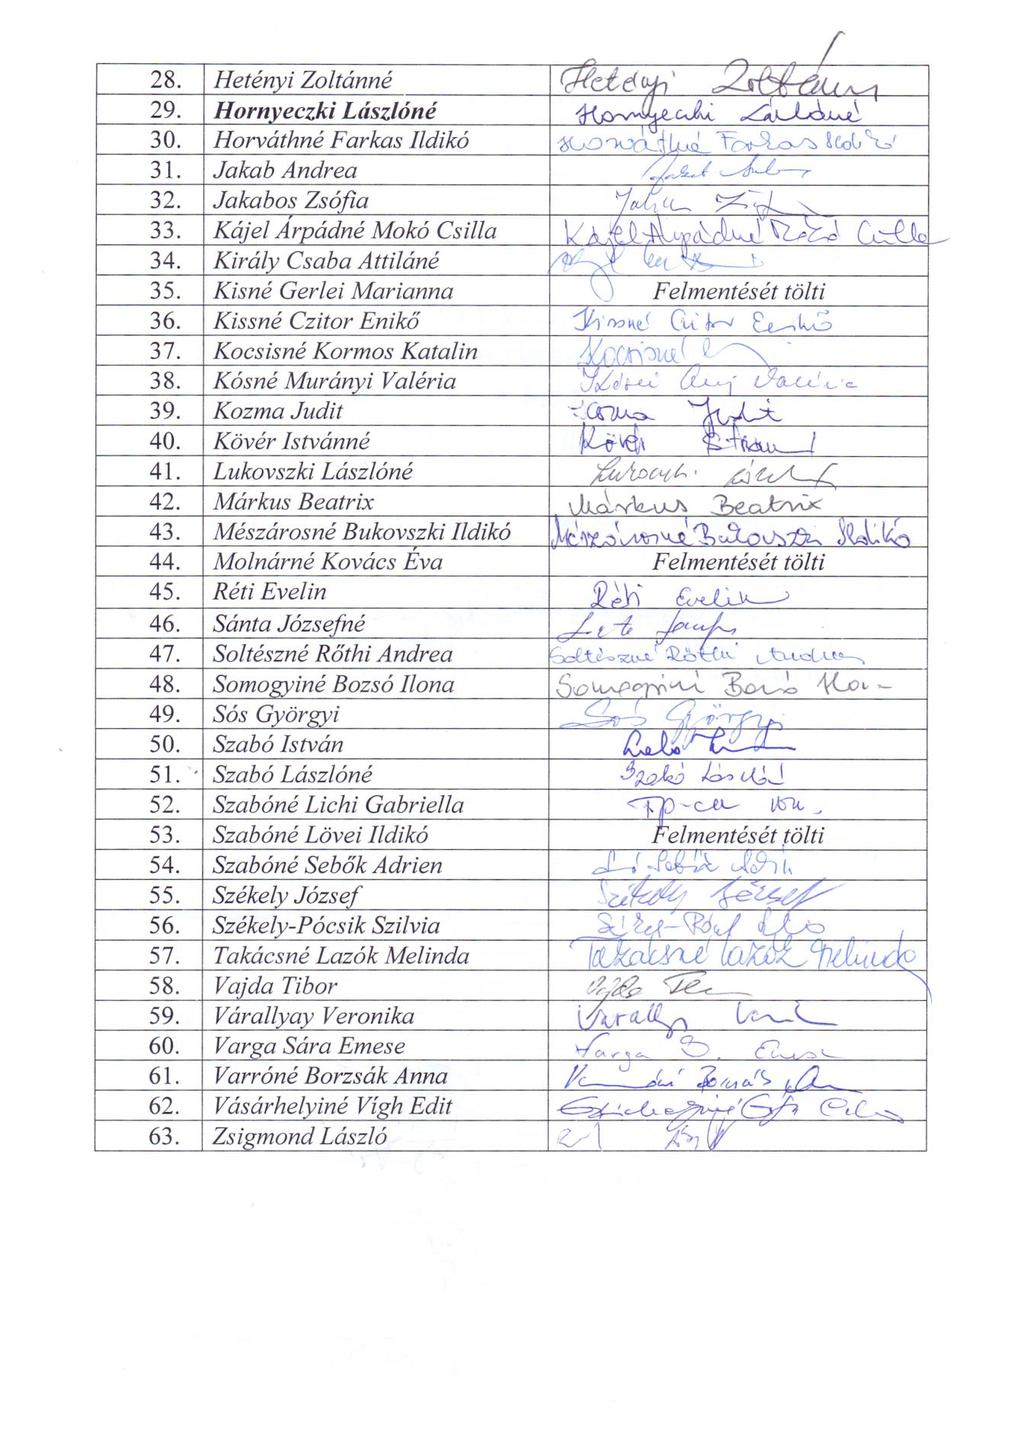 28. Hetényi Zoltánné Hetényi Zoltánné
29. Hornyeczki Lászlóné Hornyeczki Lászlóné
30. Horváthné Farkas Ildikó Horváthné Farkas Ildikó
31. Jakab Andrea
32. Jakabos Zsófia
33. Kájel Árpádné Mokó Csilla Kájel Árpádné Mokó Csilla
34. Király Csaba Attiláné
35. Kisné Gerlei Marianna Felmentését tölti
36. Kissné Czitor Enikő Kissné Czitor Enikő
37. Kocsisné Kormos Katalin Kocsisné
38. Kósné Murányi Valéria
39. Kozma Judit Kozma Judit
40. Kövér Istvánné Kövér
41. Lukovszki Lászlóné
42. Márkus Beatrix Márkus Beatrix
43. Mészárosné Bukovszki Ildikó Mészárosné Bukovszki Ildikó
44. Molnárné Kovács Éva Felmentését tölti
45. Réti Evelin Réti Evelin
46. Sánta Józsefné
47. Soltészné Rőthi Andrea Soltészné Rőthi Andrea
48. Somogyiné Bozsó Ilona Somogyiné Bozsó
49. Sós Györgyi Sós Györgyi
50. Szabó István
51. Szabó Lászlóné Szabó Lászlóné
52. Szabóné Lichi Gabriella
53. Szabóné Lövei Ildikó Felmentését tölti
54. Szabóné Sebők Adrien
55. Székely József Székely József
56. Székely-Pócsik Szilvia
57. Takácsné Lazók Melinda Takácsné Lazók Melinda
58. Vajda Tibor Vajda
59. Várallyay Veronika
60. Varga Sára Emese Varga S. Emese
61. Varróné Borzsák Anna
62. Vásárhelyiné Vígh Edit
63. Zsigmond László